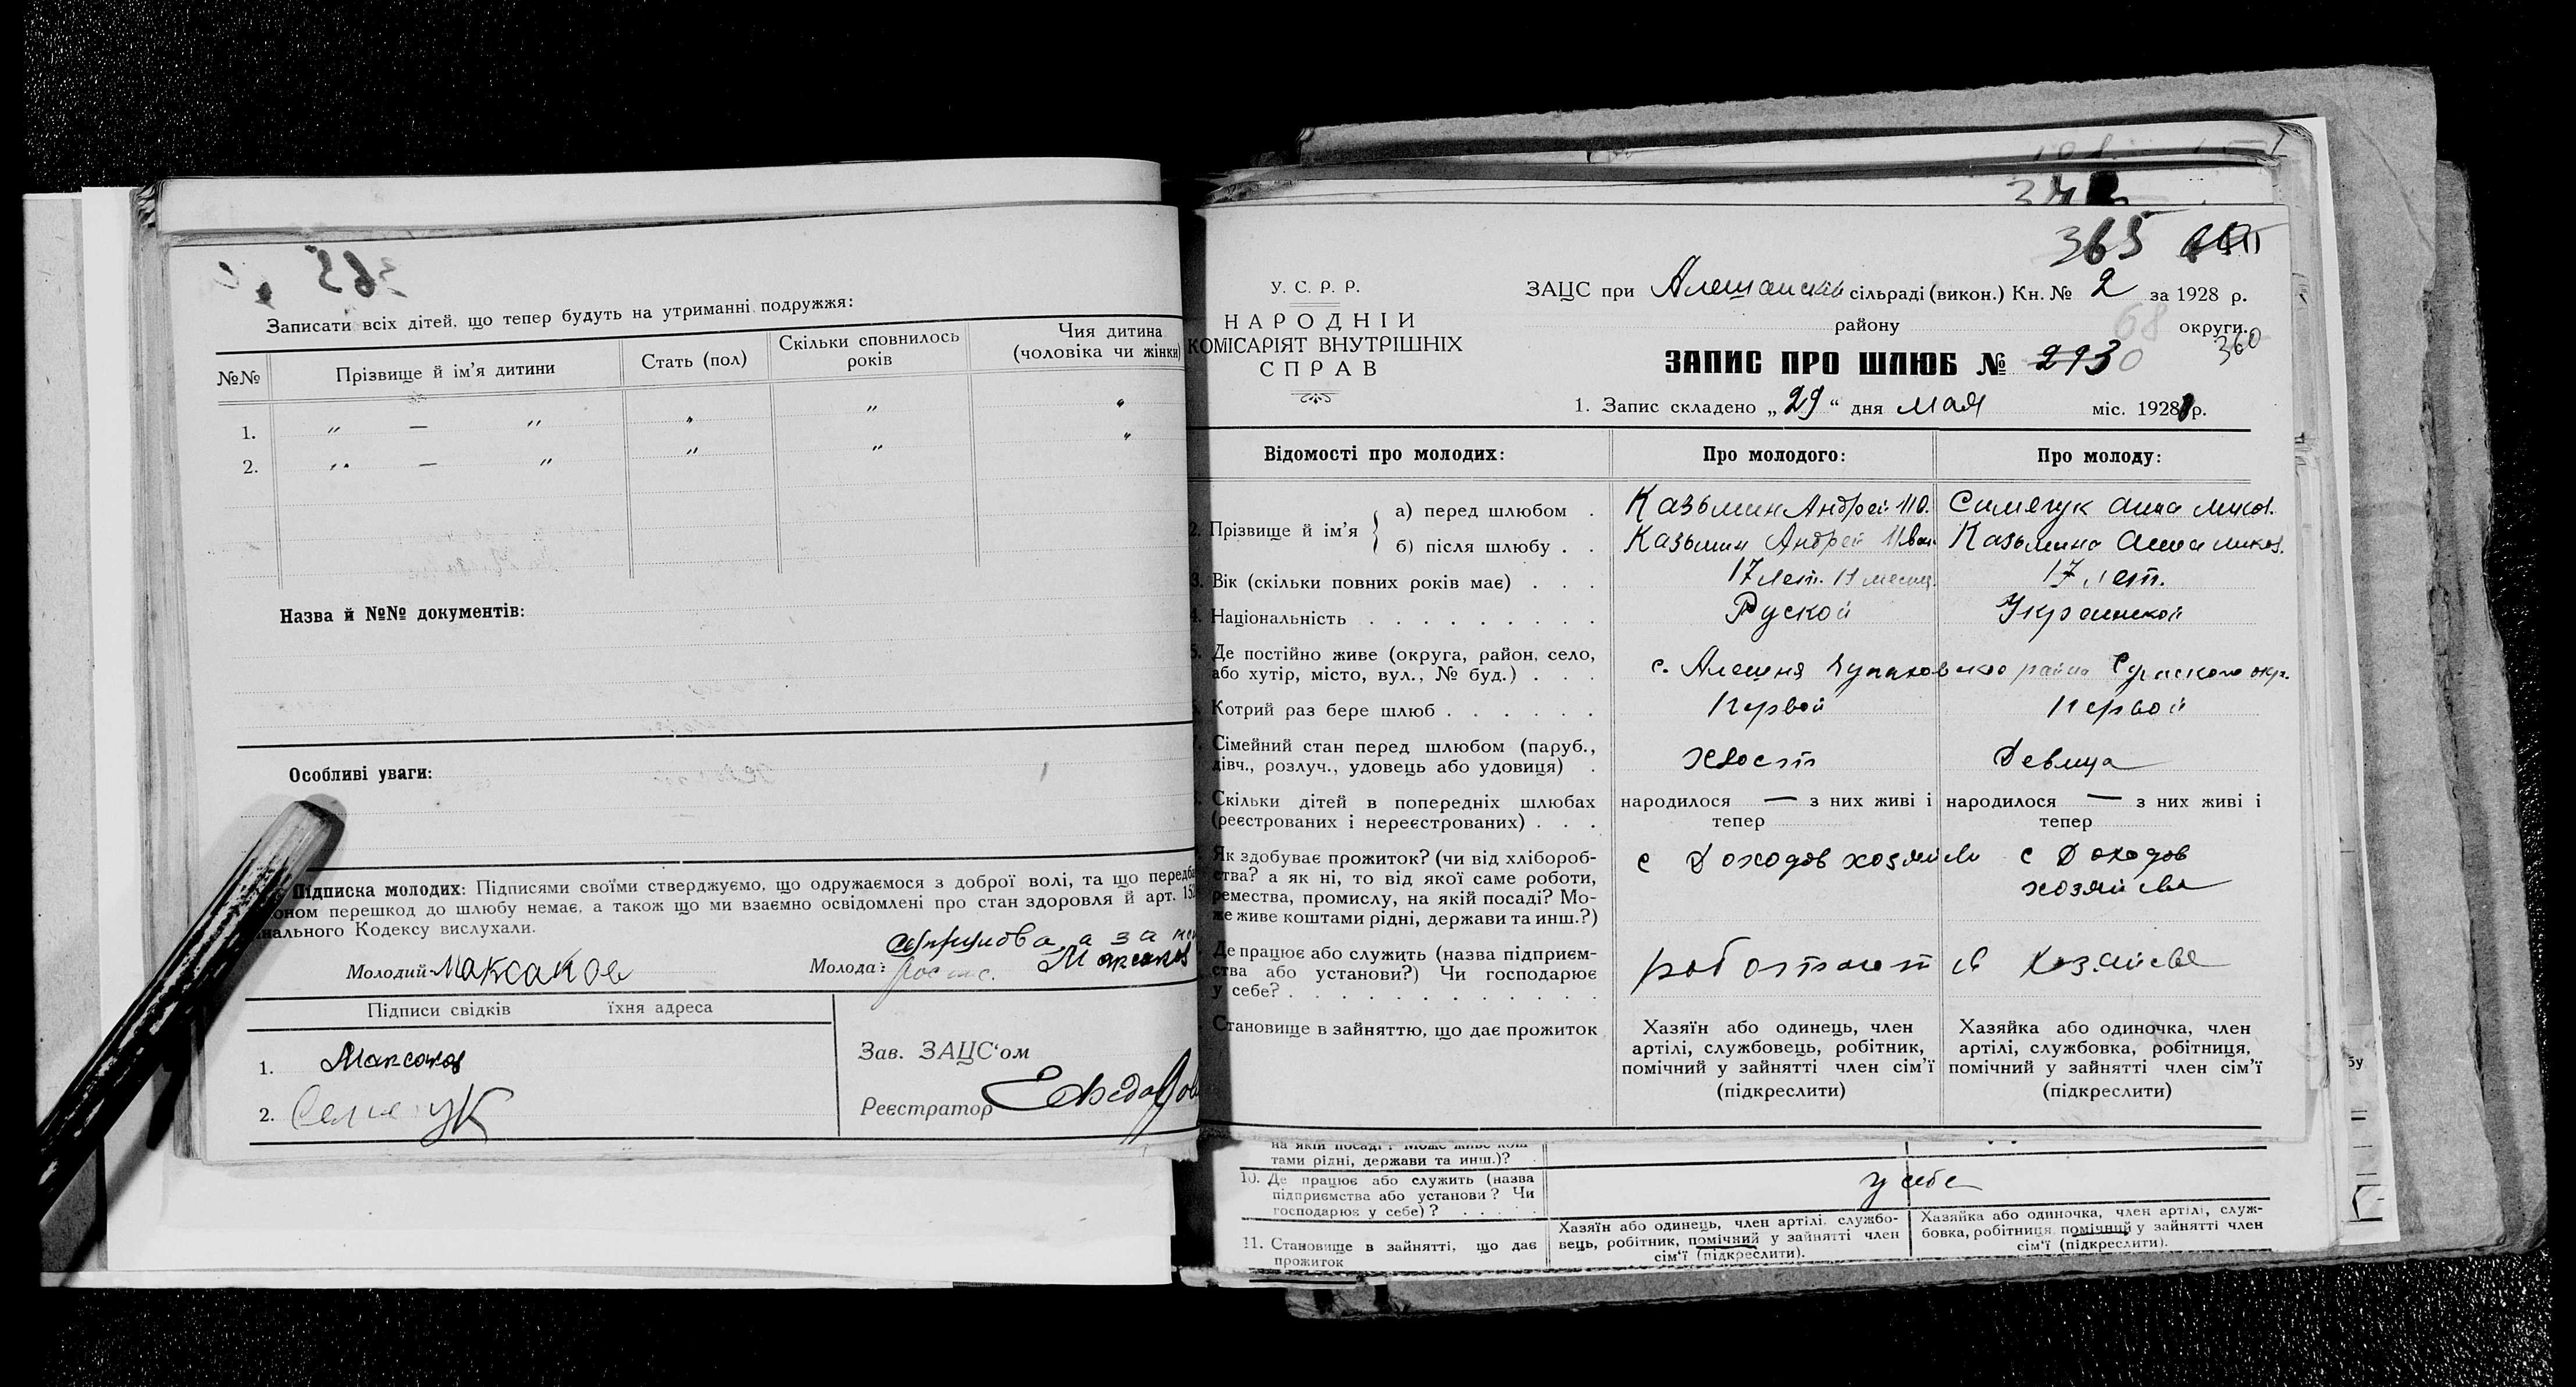 365
Записати всіх дітей, що тепер будуть на утриманні подружжя:
№№ Прізвище й ім'я дитини Стать (пол) Скільки сповнилось років Чия дитина (чоловіка чи жінки)
1. " — " " " "
2. " — " " " "
Назва й №№ документів:
Особливі уваги:
Підписка молодих: Підписями своїми стверджуємо, що одружаємося з доброї волі, та що передба
оном перешкод до шлюбу немає, а також що ми взаємно освідомлені про стан здоровля й арт. 15
нального Кодексу вислухали.
а за
Молодий Максаков Молода: Максаков
Підписи свідків їхня адреса
1. Максаков
2.
Зав. ЗАЦС'ом
Реєстратор
365
У. С. Р. Р.
НАРОДНІЙ
КОМІСАРІЯТ ВНУТРІШНІХ
СПРАВ
ЗАЦС при Алешанскій сільраді (викон.) Кн. № 2 за 1928 р.
району 68 округи.
360
ЗАПИС ПРО ШЛЮБ № 2930
1. Запис складено „29“ дня мая міс. 1928 р.
Відомості про молодих: Про молодого: Про молоду:
2. Прізвище й ім'я
а) перед шлюбом . Казьмин Андрей Ив. Симячук Анна Микол.
б) після шлюбу . . Казьмин Андрей Иван. Казьмина Анна Микол.
3. Вік (скільки повних років має) . . . 17 лет. 11 месяц. 17 лет.
4. Національність . . . . . . . . . Руской Украинской
5. Де постійно живе (округа, район, село,
або хутір, місто, вул., № буд.) . . . с. Алешня Чупаховского района Сумского окр.
Котрий раз бере шлюб . . . . . . Первой Первой
Сімейний стан перед шлюбом (паруб.,
дівч., розлуч., удовець або удовиця) . холост Девица
Скільки дітей в попередніх шлюбах
(реєстрованих і нереєстрованих) . . .
народилося — з них живі і тепер
народилося — з них живі і тепер
Як здобуває прожиток? (чи від хлібороб-
ства? а як ні, то від якої саме роботи,
ремества, промислу, на якій посаді? Мо-
же живе коштами рідні, держави та инш.?)
с Доходов хозяйства
с Доходов
хозяйства
Де працює або служить (назва підприєм-
ства або установи?) Чи господарює
у себе? . . . . . . . . . . . .
работают в хозяйстве
Становище в зайняттю, що дає прожиток
Хазяїн або одинець, член
артілі, службовець, робітник,
помічний у зайнятті член сім'ї
(підкреслити)
Хазяйка або одиночка, член
артілі, службовка, робітниця,
помічний у зайнятті член сім'ї
(підкреслити)
на якій посаді? Може живе кош-
тами рідні, держави та инш.)?
10. Де працює або служить (назва
підприємства або установи? Чи
господарює у себе)? . . . . .
у себе
11. Становище в зайнятті, що дає
прожиток
Хазяїн або одинець, член артілі, службо-
вець, робітник, помічний у зайнятті член
сім'ї (підкреслити).
Хазяйка або одиночка, член артілі, служ-
бовка, робітниця, помічний у зайнятті член
сім'ї (підкреслити).